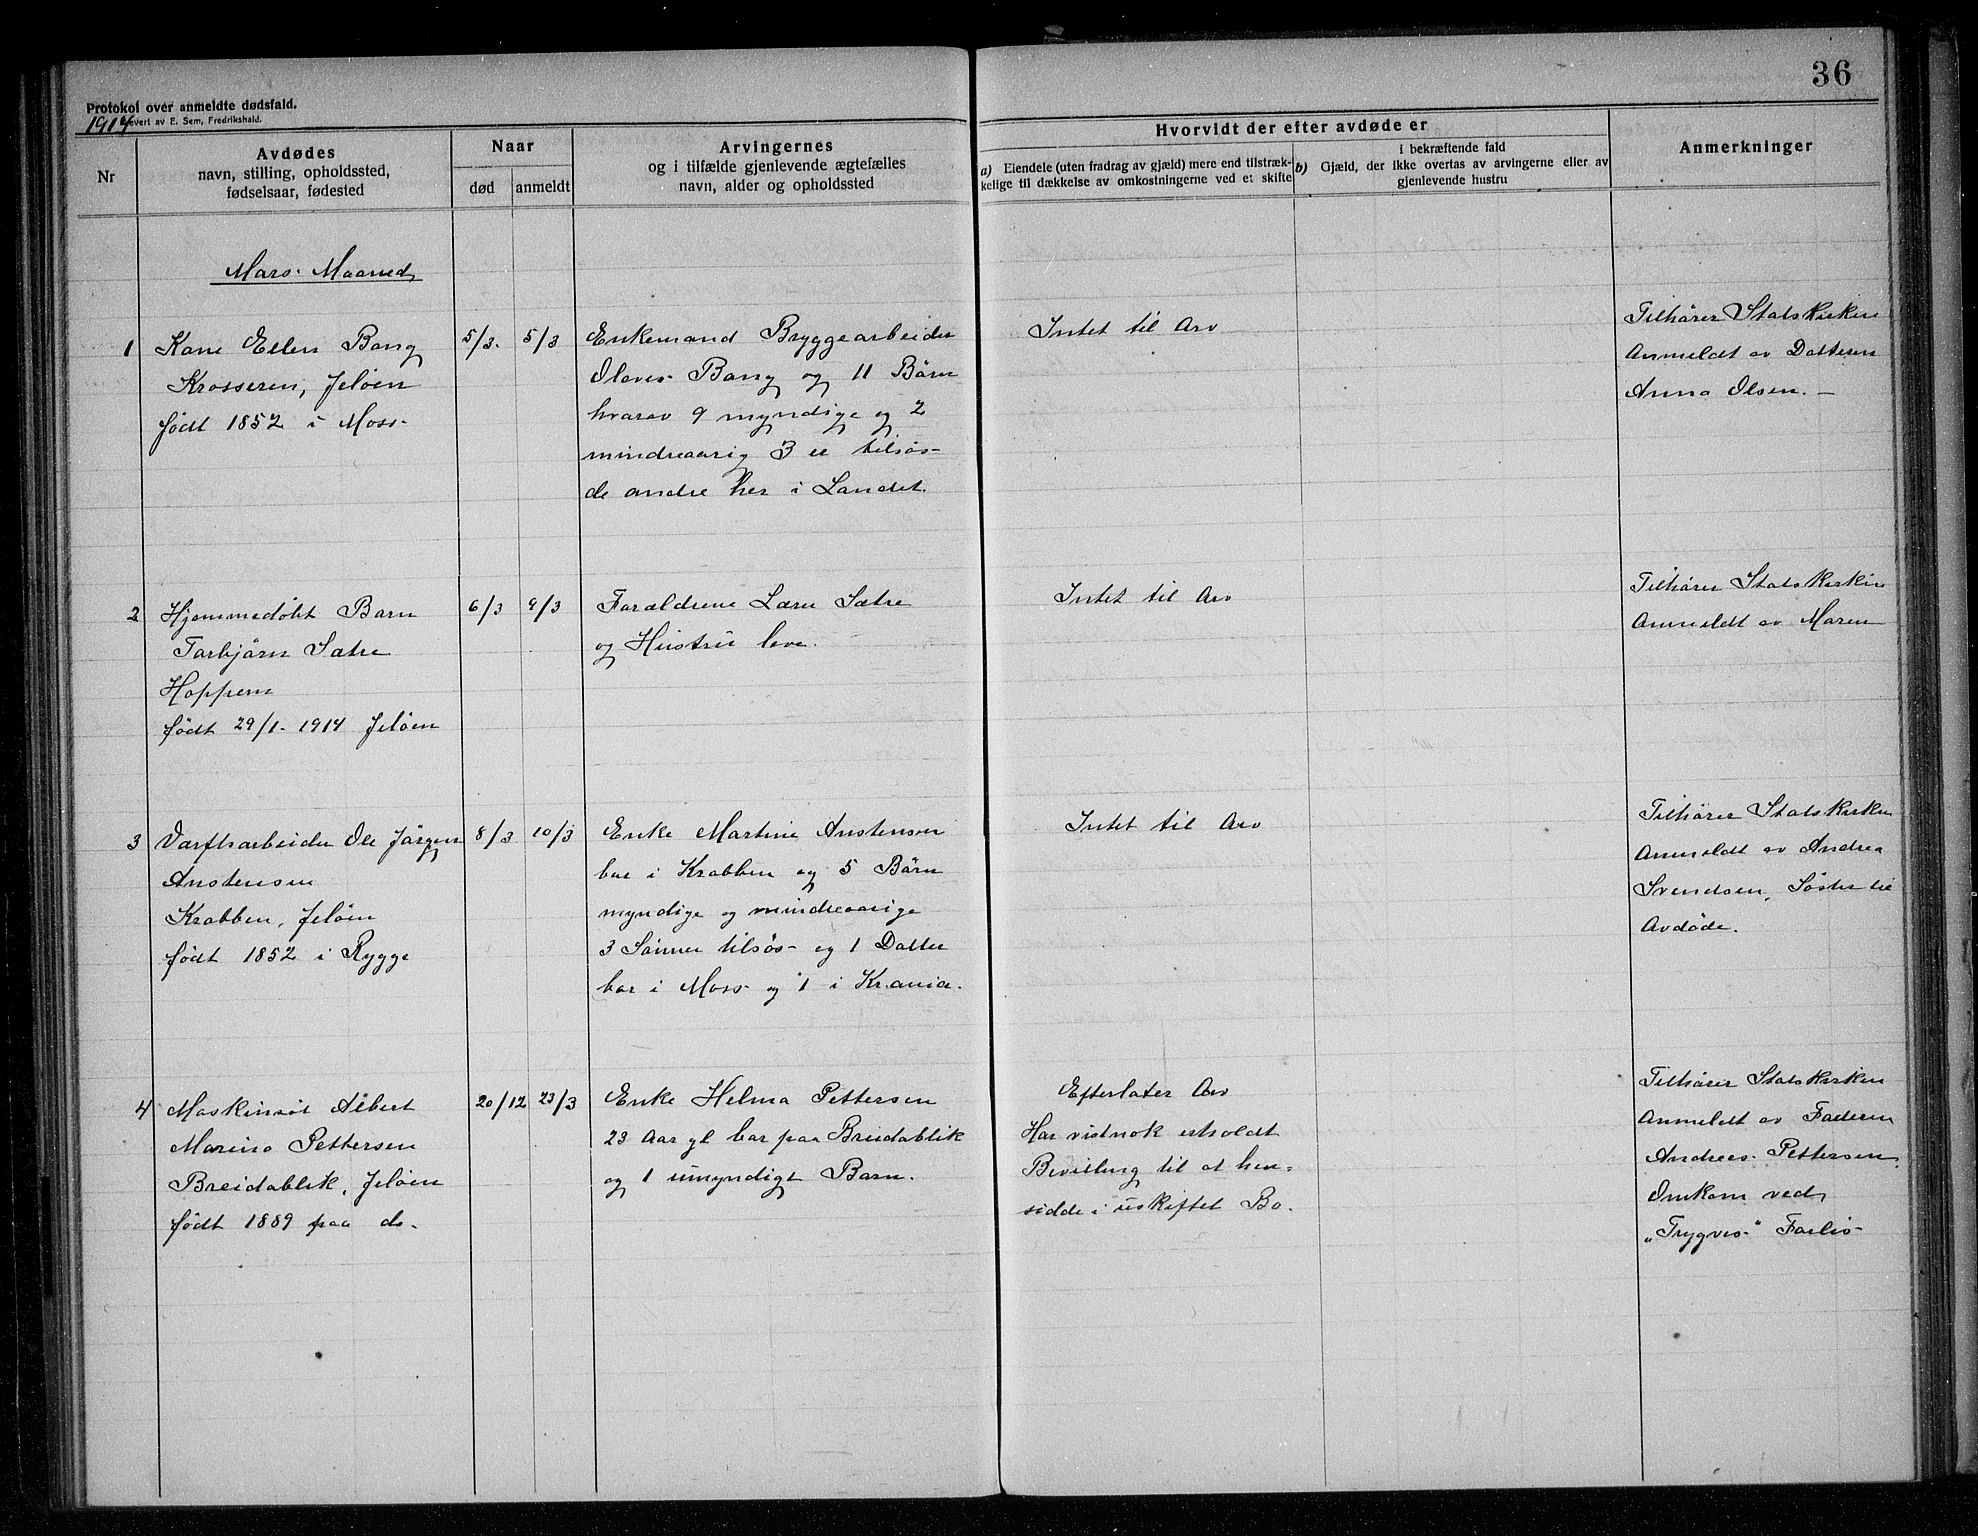 36
Protokol over anmeldte dødsfald.
1914
Levert av E. Sem, Fredrikshald.
Nr
Avdødes
navn, stilling, opholdssted,
fødselsaar, fødested
Naar
død
anmeldt
Arvingernes
og i tilfælde gjenlevende ægtefælles
navn, alder og opholdssted
Hvorvidt der efter avdøde er
a) Eiendele (uten fradrag av gjæld) mere end tilstræk-
kelige til dækkelse av omkostningerne ved et skifte
b)
i bekræftende fald
Gjæld, der ikke overtas av arvingerne eller av
gjenlevende hustru
Anmerkninger
Mars Maaned
1
Kone Ellen Bang
Krosseren, Jeløen
født 1852 i Moss-
5/3.
5/3
Enkemand Bryggearbeider
Olaves Bang og 11 Børn
hvorav 9 myndige og 2
mindreaarig 3 er tilsøs-
de andre her i Landet.
Intet til Arv
Tilhører Statskirken
Anmeldt av Datteren
Anna Olsen. –
2
Hjemmedøbt Barn
Torbjørn Sætre
Hoppern
født 29/1- 1914 Jeløen
6/3
9/3
Forældrene Lærer Sætre
og Hustru leve.
Intet til Arv
Tilhører Statskirken
Anmeldt av Maren
3
Værftsarbeider Ole Jørgen
Anstensen
Krabben, Jeløen
født 1852 i Rygge
8/3
10/3
Enke Martine Anstensen
bor i Krabben og 5 Børn
myndige og mindreaarige
3 Sønner tilsøs- og 1 Datter
bor i Moss- og 1 i Kr.ania.
Intet til Arv
Tilhører Statskirken
Anmeldt av Andrea
Svendsen, Søster til
Avdøde.
4
Maskinist Albert
Marino Pettersen
Breidablik, Jeløen
født 1889 paa do-
20/12
23/3
Enke Helma Pettersen
23 Aar gl bor paa Breidablik
og 1 umyndigt Barn.
Efterlater Arv
Har vistnok erholdt
Bevilling til at hen-
sidde i uskiftet Bo.
Tilhører Statskirken
Anmeldt av Faderen
Andreas Pettersen
Omkom ved
„Trygves" Forlis-